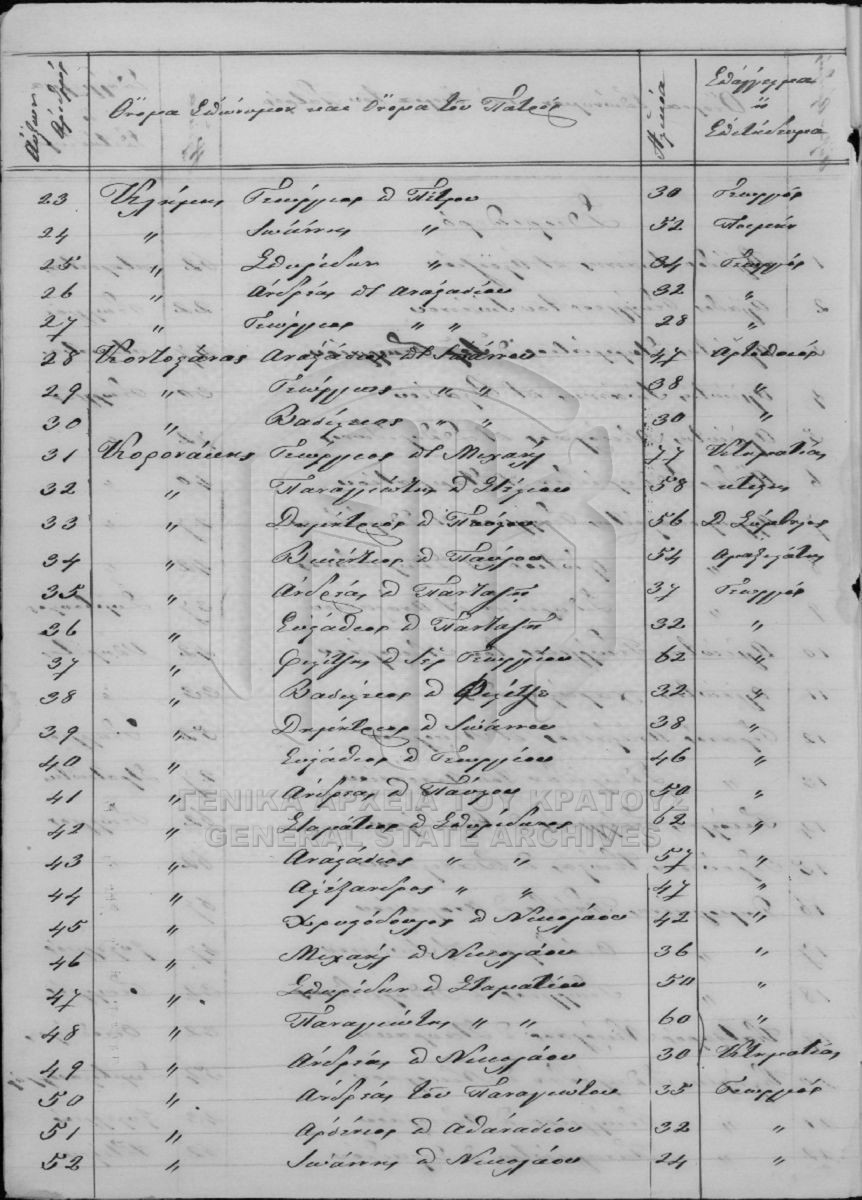 Αὔξων Ἀριθμός Ὄνομα Ἐπώνυμον καὶ Ὄνομα τοῦ Πατρός Ἡλικία Ἐπάγγελμα ἢ Ἐπιτήδευμα
23 Κλήμης Γεώργιος Π Πέτρου 30 Γεωργός
24 " Ἰωάννης " 52 Ποιμήν
25 " Σπυρίδων " 34 Γεωργός
26 " Ἀνδρέας Π Ἀναστασίου 32 "
27 " Γεώργιος " " 28 "
28 Κοντολάνας Ἀναστάσιος Π Ἰωάννου 47 Ἀρτοποιός
29 " Γεώργιος " " 38 "
30 " Βασίλειος " " 30 "
31 Κορονάκης Γεώργιος Π Μιχαήλ 77 Κτηματίας
32 " Παναγιώτης Π Στέλιου 58 κτίστης
33 " Δημήτριος Π Παύλου 56 Δ Σύμβουλος
34 " Βικέντιος Π Παύλου 54 Ἁμαξηλάτης
35 " Ἀνδρέας Π Πανταζῆ 37 Γεωργός
36 " Εὐστάθιος Π Πανταζῆ 32 "
37 " Φιλίτζης Π Γεωργίου 62 "
38 " Βασίλειος Π Φιλίτζη 32 "
39 " Δημήτριος Π Ἰωάννου 38 "
40 " Εὐστάθιος Π Γεωργίου 46 "
41 " Ἀνδρέας Π Παύλου 50 "
ΓΕΝΙΚΑ ΑΡΧΕΙΑ ΤΟΥ ΚΡΑΤΟΥΣ
42 " Σταμάτιος Π Σπυρίδωνος 62 "
GENERAL STATE ARCHIVES
43 " Ἀναστάσιος " " 57 "
44 " Ἀλέξανδρος " " 47 "
45 " Χριστόδουλος Π Νικολάου 42 "
46 " Μιχαήλ Π Νικολάου 36 "
47 " Σπυρίδων Π Σταματίου 50 "
48 " Παναγιώτης " " 60 "
49 " Ἀνδρέας Π Νικολάου 30 Κτηματίας
50 " Ἀνδρέας τοῦ Παναγιώτου 35 Γεωργός
51 " Ἀρσένιος Π Ἀθανασίου 32 "
52 " Ἰωάννης Π Νικολάου 24 "